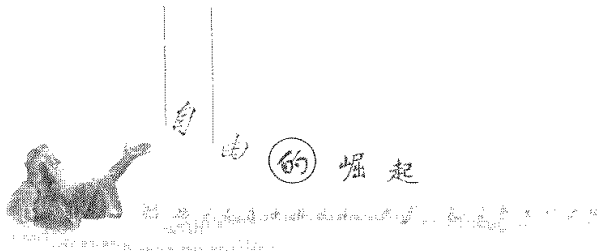 自由的崛起